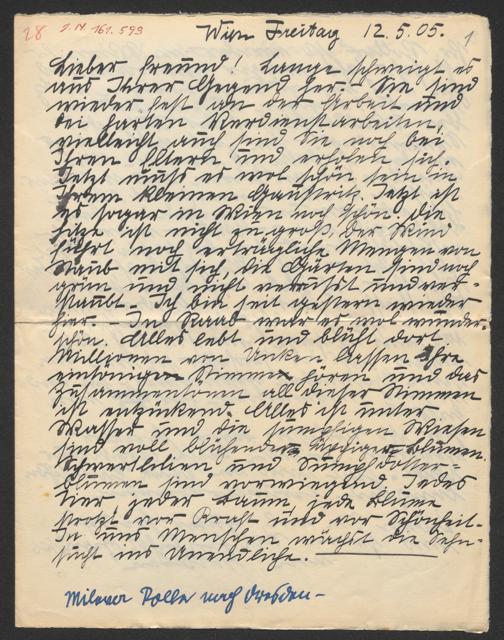 28 J.N. 161.593
Wien Freitag 12.5.05. 1
Lieber Freund! Lange schweigt es
aus Ihrer Gegend her. – Sie sind
wieder fest an der Arbeit und
bei harten Verdienstarbeiten,
vielleicht auch sind Sie noch bei
Ihren Eltern und erholen sich.
Jetzt muss es wol schön sein in
Ihrem kleinen Gaustritz. Jetzt ist
es sogar in Wien noch schön. Die
Hitze ist nicht zu groß, der Wind
führt noch erträgliche Mengen von
Staub mit sich, die Gärten sind noch
grün und nicht verrusst und ver-
staubt. – Ich bin seit gestern wieder
hier. – In Raab war es wol wunder-
schön. Alles lebt und blüht dort
Millionen von Unken lassen Ihre
eintönigen Stimmen hören und das
Zusammentönen all dieser Stimmen
ist entzückend. Alles ist unter
Wasser und die sumpfigen Wiesen
sind voll blühender üppiger Blumen.
Schwertlilien und Sumpfdotter-
blumen sind vorwiegend. Jedes
Tier jeder Baum jede Blume
strotzt vor Kraft und vor Schönheit.
In uns Menschen wächst die Sehn-
sucht ins Unendliche.
Mileva Roller nach Dresden –